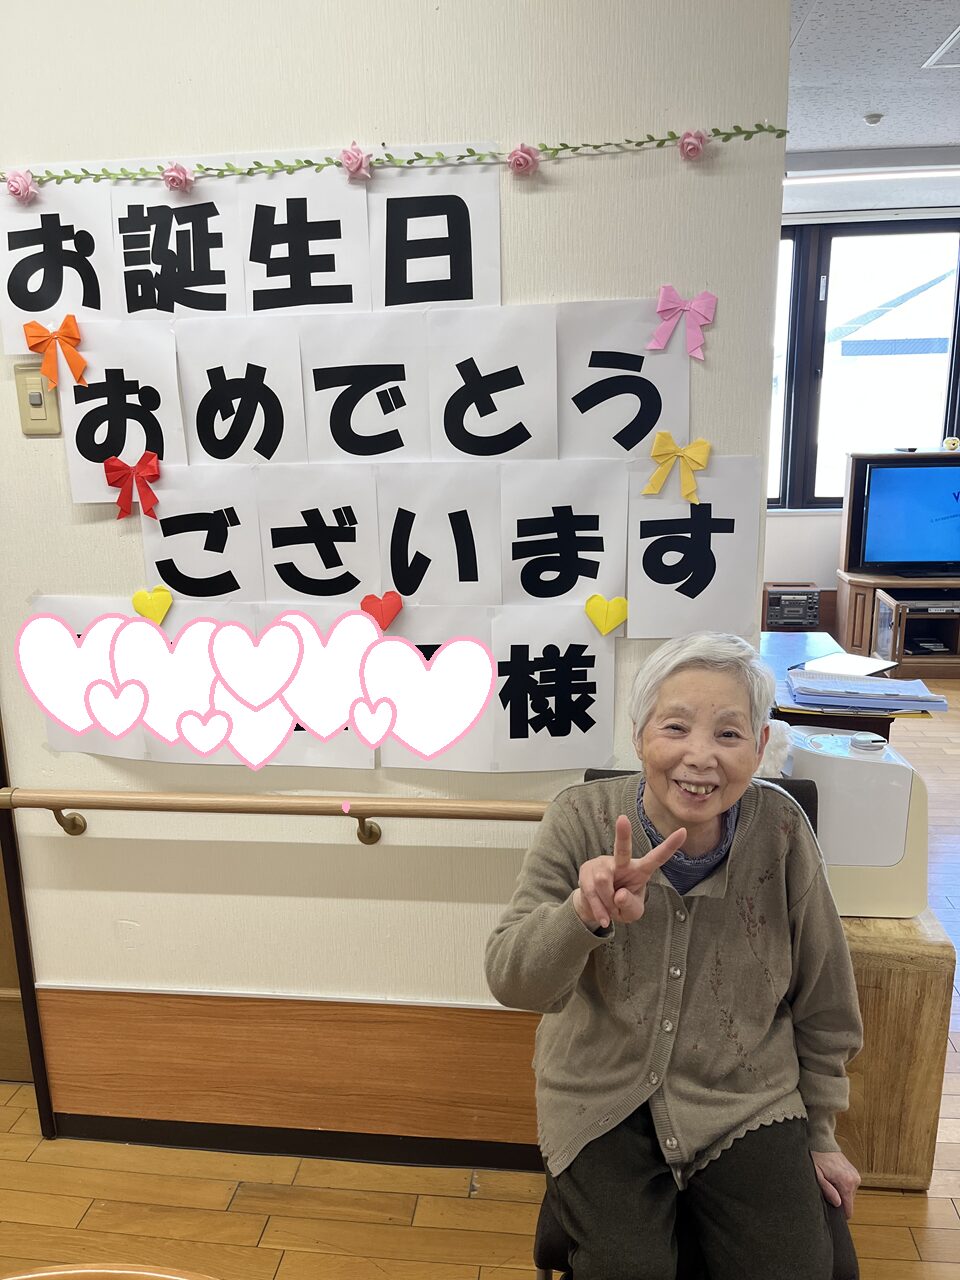 お誕生日
おめでとう
ございます
様